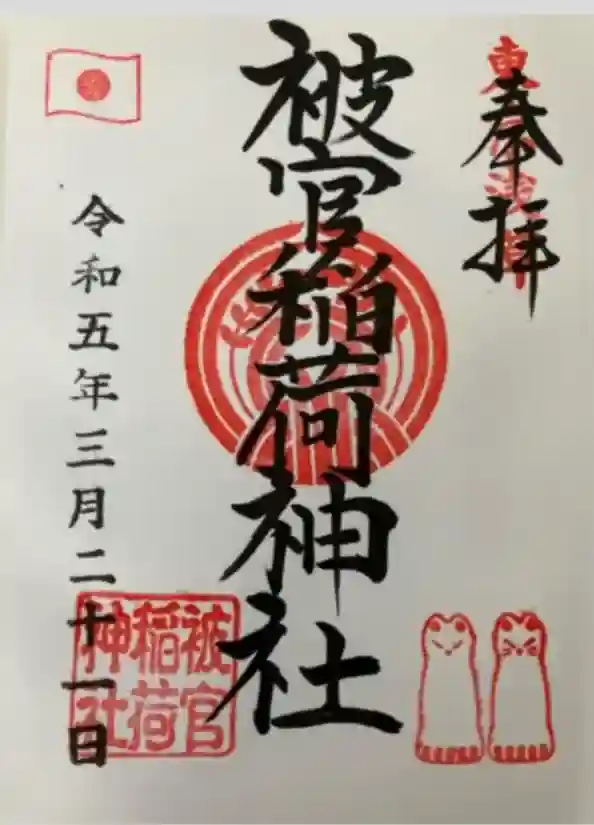 奉拝
東京浅草
被官稲荷神社
被官
稲荷
神社
令和五年三月二十一日